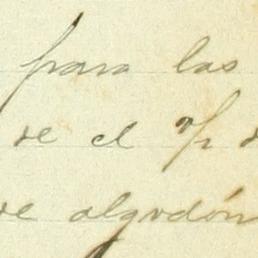 para las
se el % d
de algodón